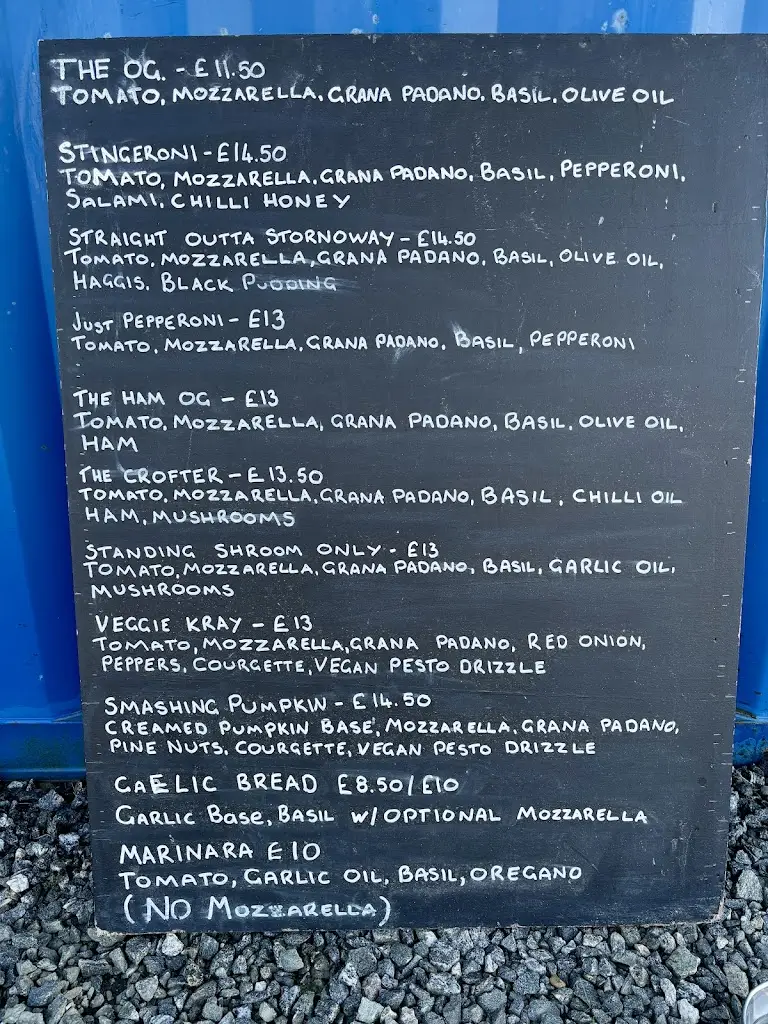 THE OG. - £11.50
TOMATO, MOZZARELLA, GRANA PADANO, BASIL, OLIVE OIL
STINGERONI - £14.50
TOMATO, MOZZARELLA, GRANA PADANO, BASIL, PEPPERONI,
SALAMI, CHILLI HONEY
STRAIGHT OUTTA STORNOWAY - £14.50
TOMATO, MOZZARELLA, GRANA PADANO, BASIL, OLIVE OIL,
HAGGIS, BLACK PUDDING
JUST PEPPERONI - £13
TOMATO, MOZZARELLA, GRANA PADANO, BASIL, PEPPERONI
THE HAM OG - £13
TOMATO, MOZZARELLA, GRANA PADANO, BASIL, OLIVE OIL,
HAM
THE CROFTER - £13.50
TOMATO, MOZZARELLA, GRANA PADANO, BASIL, CHILLI OIL
HAM, MUSHROOMS
STANDING SHROOM ONLY - £13
TOMATO, MOZZARELLA, GRANA PADANO, BASIL, GARLIC OIL,
MUSHROOMS
VEGGIE KRAY - £13
TOMATO, MOZZARELLA, GRANA PADANO, RED ONION,
PEPPERS, COURGETTE, VEGAN PESTO DRIZZLE
SMASHING PUMPKIN - £14.50
CREAMED PUMPKIN BASE, MOZZARELLA, GRANA PADANO,
PINE NUTS, COURGETTE, VEGAN PESTO DRIZZLE
GAELIC BREAD £8.50/£10
GARLIC BASE, BASIL W/ OPTIONAL MOZZARELLA
MARINARA £10
TOMATO, GARLIC OIL, BASIL, OREGANO
(NO MOZZARELLA)